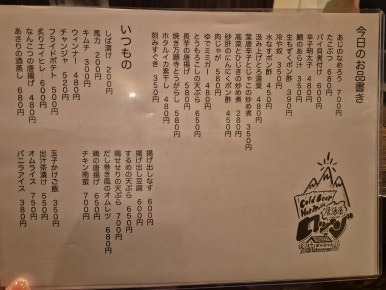 今日のお品書き
あじのなめろう 700円
たこぶつ 580円
バイ貝煮付け 480円
辛子明太子 480円
鯛のあら汁 350円
生もずくポン酢 390円
冷やッ奴
ポン酢
汲み上げとろ湯葉 480円
葉唐辛子とじゃこの炒め煮 350円
高菜のピリ辛炒め煮 280円
砂肝のにんにくポン酢 450円
肉じゃが 580円
ゆでミミガー 480円
とうもろこしの天ぷら 650円
長芋の唐揚げ 580円
焼き万願寺とうがらし 580円
ホタルイカ素干し 480円
刻みすぐき 350円
いつもの
しば漬け 200円
200円
キムチ 300円
ウィンナー 480円
チャンジャ 520円
フライドポテト 500円
炙りエイヒレ 600円
なんこつの唐揚げ 480円
あさりの酒蒸し 680円
揚げ出しなす 600円
揚げ出し豆腐 600円
するめの天ぷら 650円
鶏せせりの天ぷら 700円
だし巻き風のオムレツ 680円
鶏の唐揚げ 650円
チキン南蛮 700円
玉子かけご飯 350円
出汁茶漬け 550円
オムライス 750円
バニラアイス 380円
Cold Beer
居酒屋
ロッヂ